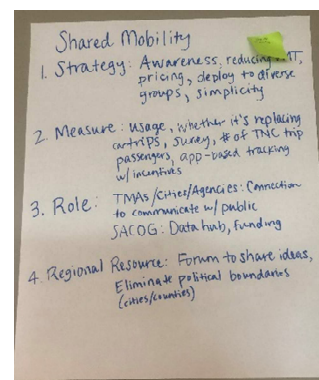 Shared Mobility
1. Strategy: Awareness, reducing MT,
pricing, deploy to diverse
groups, simplicity
2. Measure: usage, whether it's replacing
cartrips, survey, # of TNC trip
passengers, app-based tracking
w/ incentives
3. Role: TMAs/Cities/Agencies: Connection
to communicate w/ public
SACOG: Data hub, Funding
4. Regional Resource: Forum to share ideas,
Eliminate political boundaries
(cities/counties)